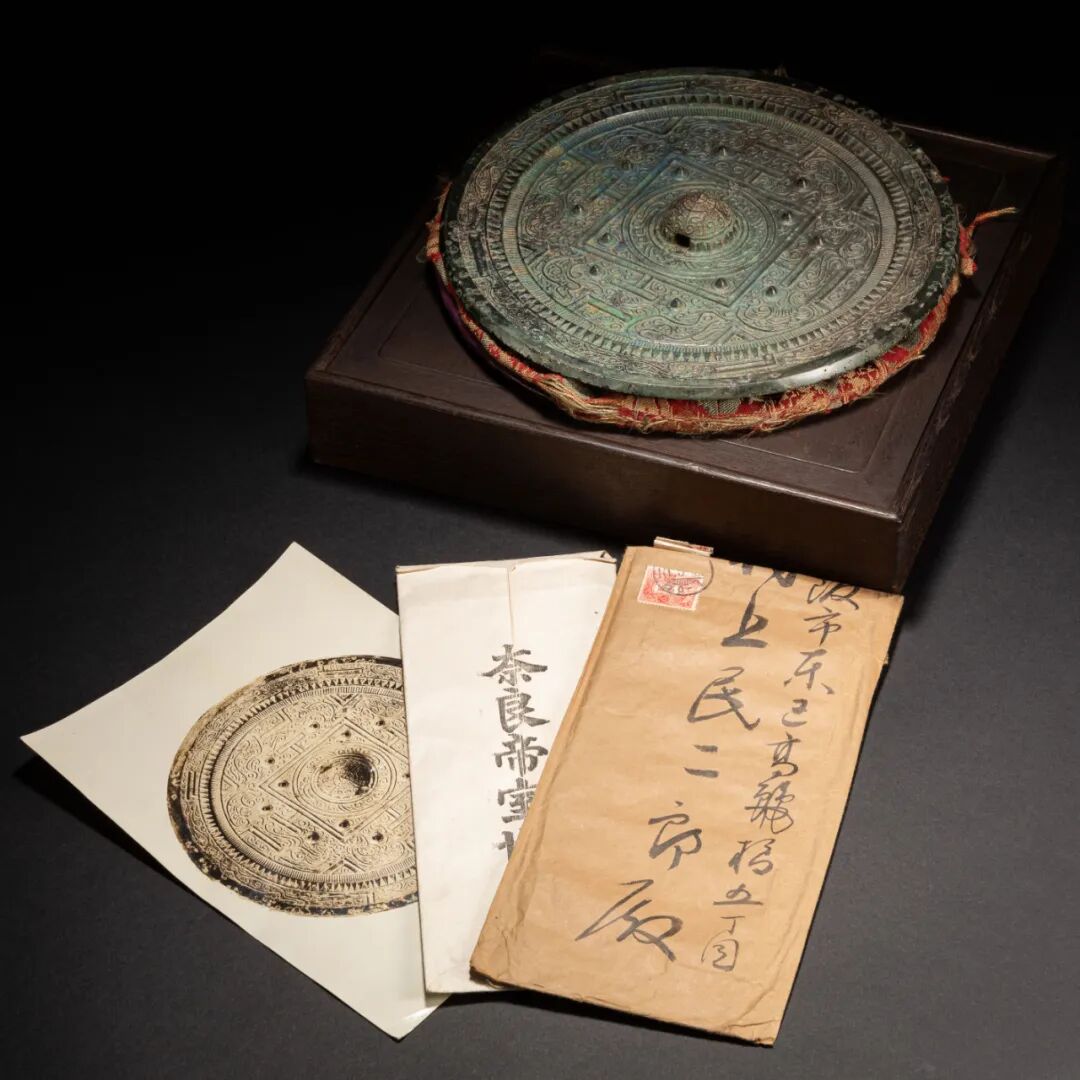 奈良帝室
阪市東区高麗橋五丁目
上民二郎殿